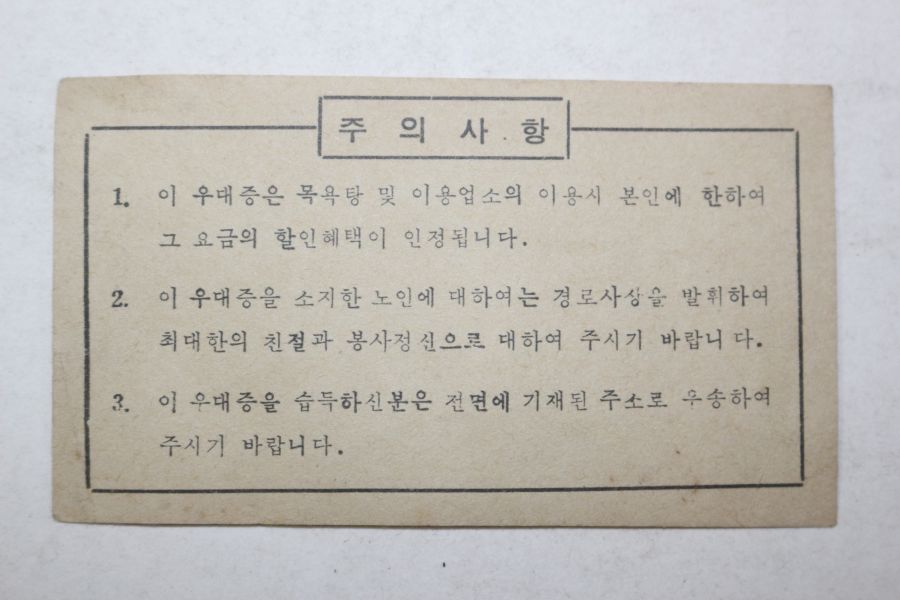 주의사항
1. 이 우대증은 목욕탕 및 이용업소의 이용시 본인에 한하여
그 요금의 할인혜택이 인정됩니다.
2. 이 우대증을 소지한 노인에 대하여는 경로사상을 발휘하여
최대한의 친절과 봉사정신으로 대하여 주시기 바랍니다.
3. 이 우대증을 습득하신분은 전면에 기재된 주소로 우송하여
주시기 바랍니다.